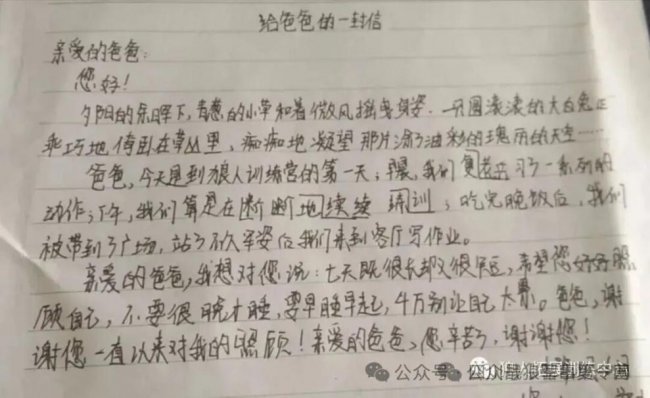 给爸爸的一封信
亲爱的爸爸：
您好！
夕阳的余晖下，青葱的小草和着微风摇曳身姿．一只圆滚滚的大白兔正
乖巧地倚卧在草丛里，痴痴地凝望那片渐了油彩的瑰丽的天空……
爸爸，今天是到狼人训练营的第一天；早晨，我们复习了一系列的
动作；下午，我们算是在断断地续续 训；吃完晚饭后，我们
被带到了广场，站了不久军姿后我们来到客厅写作业。
亲爱的爸爸，我想对您说：七天既很长却又很短，希望您好好照
顾自己，不要很晚才睡，要早睡早起，千万别让自己太累。爸爸，谢
谢您一直以来对我的照顾！亲爱的爸爸，您辛苦了，谢谢您！
公众号